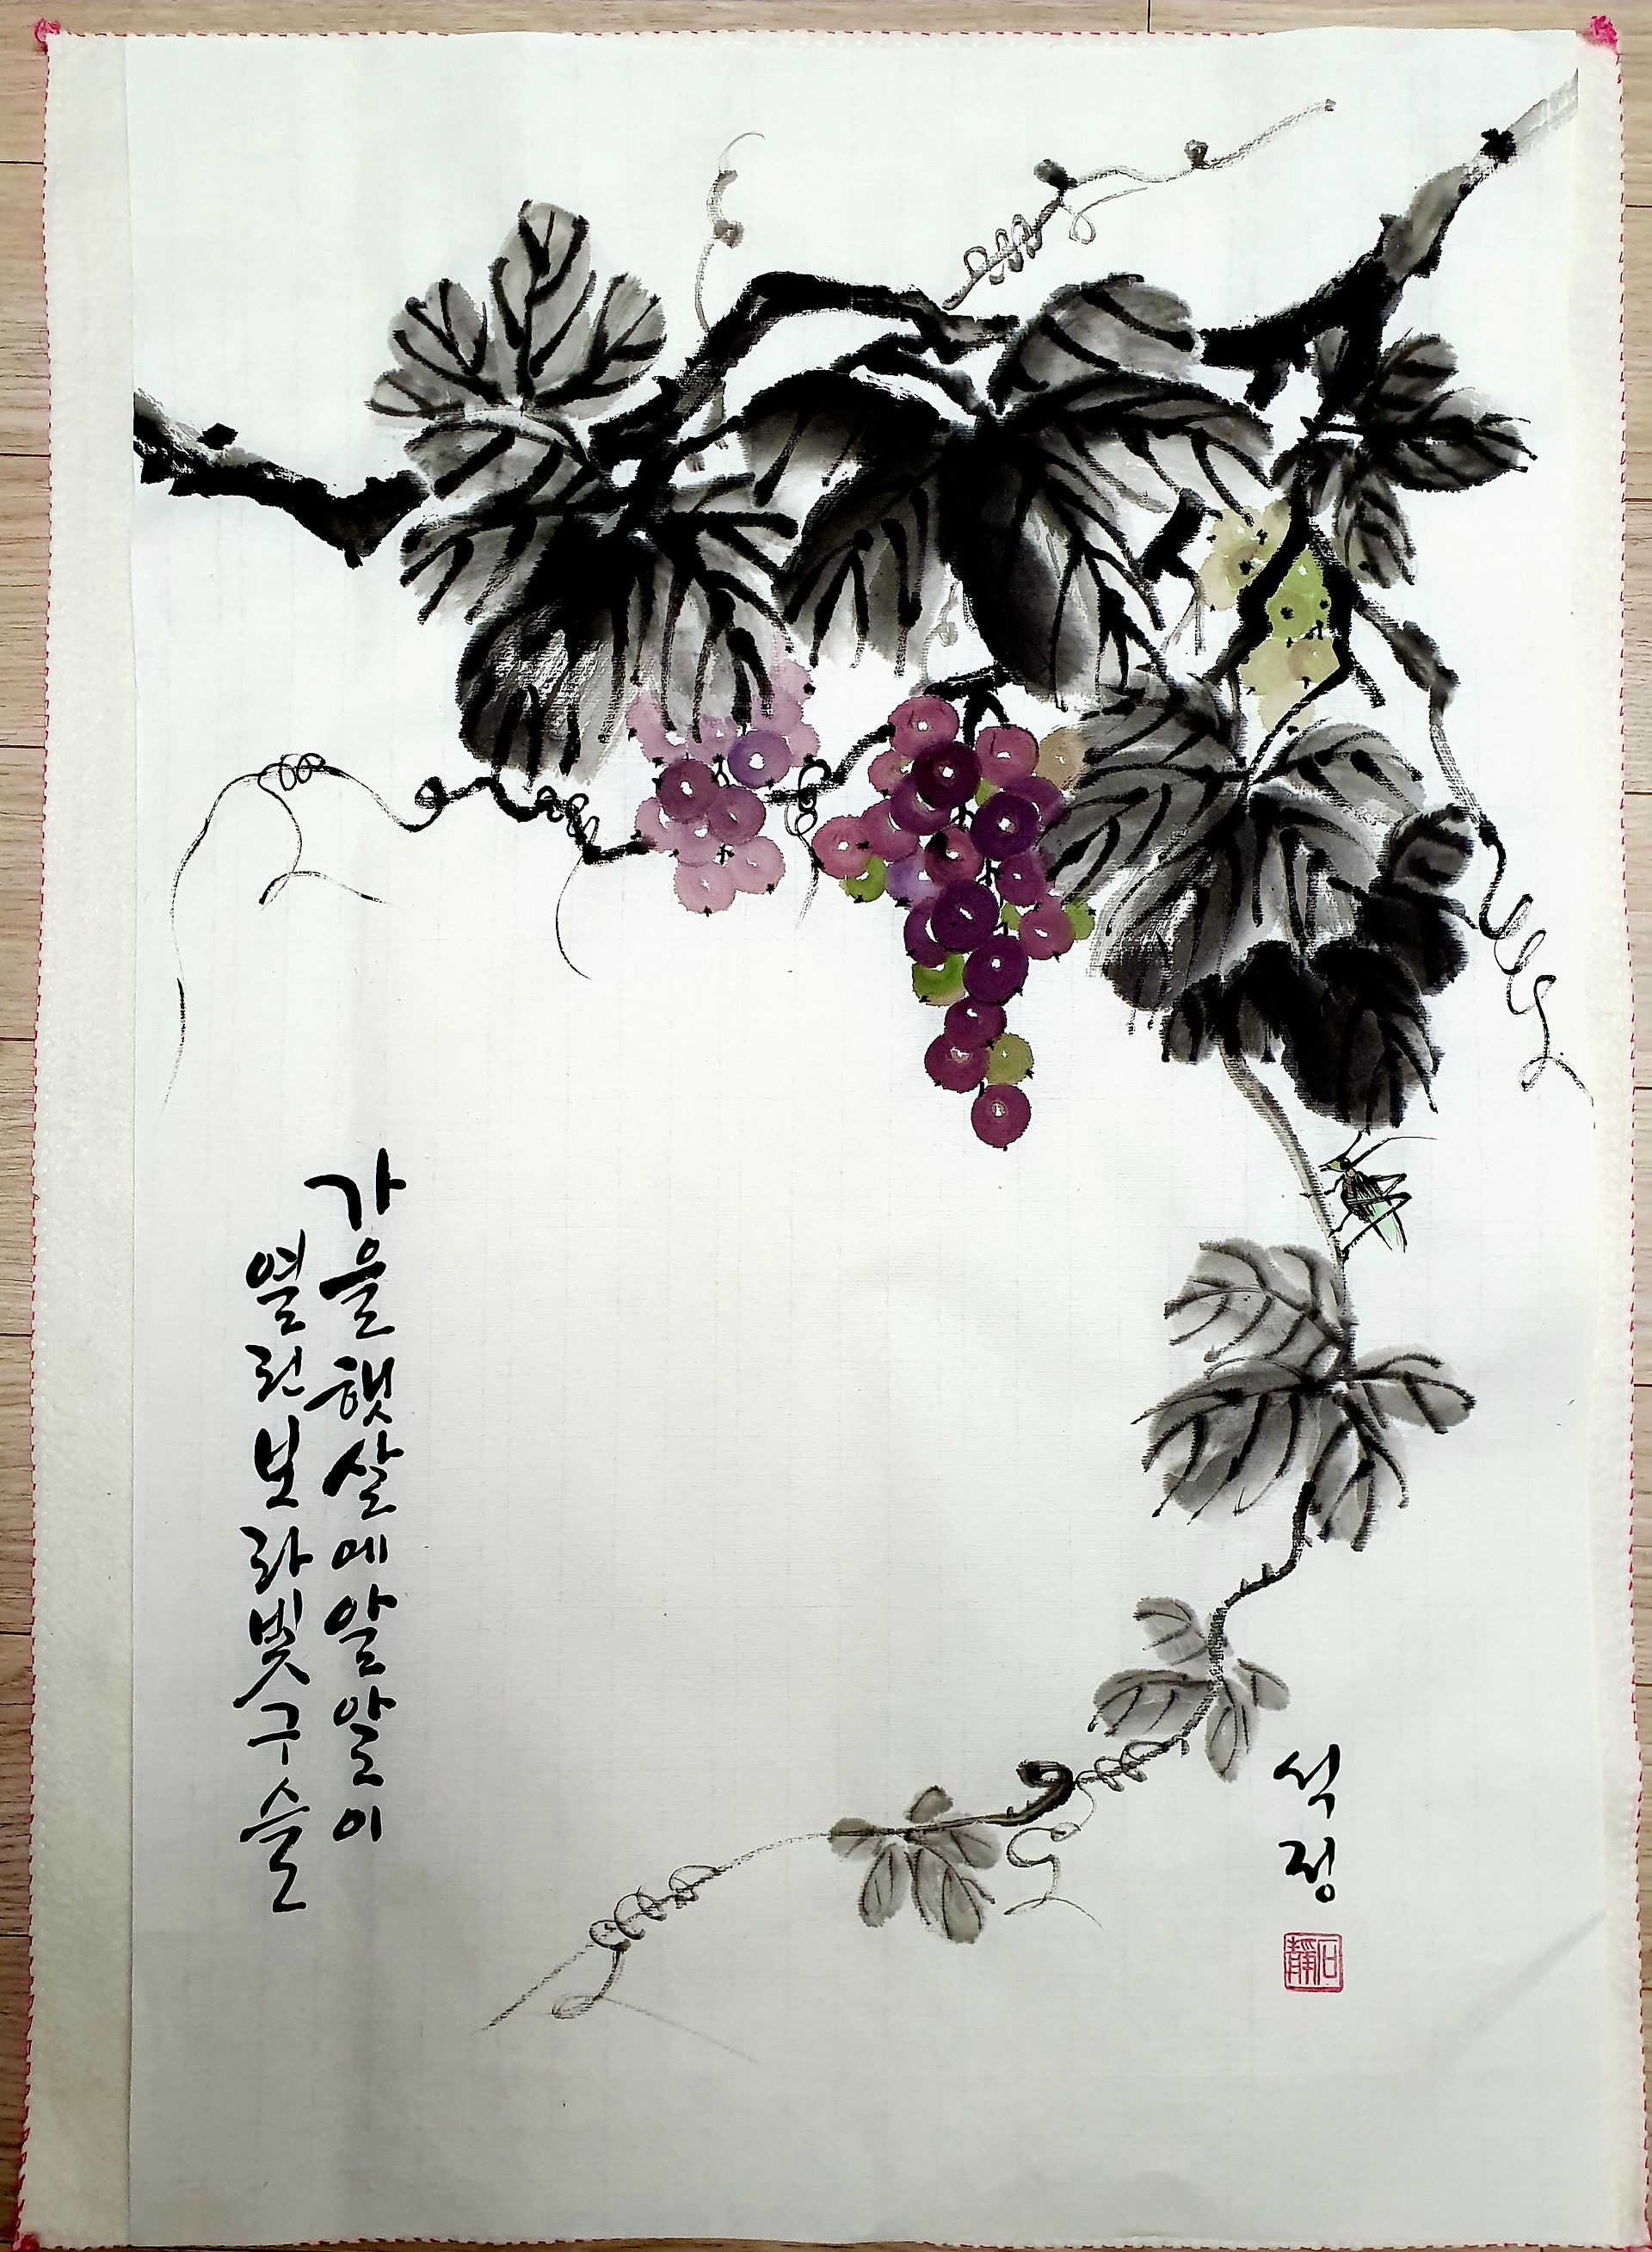 가을햇살에알알이
열린보라빛구슬
석정
石靜